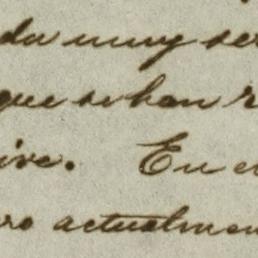 da muy ser
que se han r
ive. En e
ro actualmen